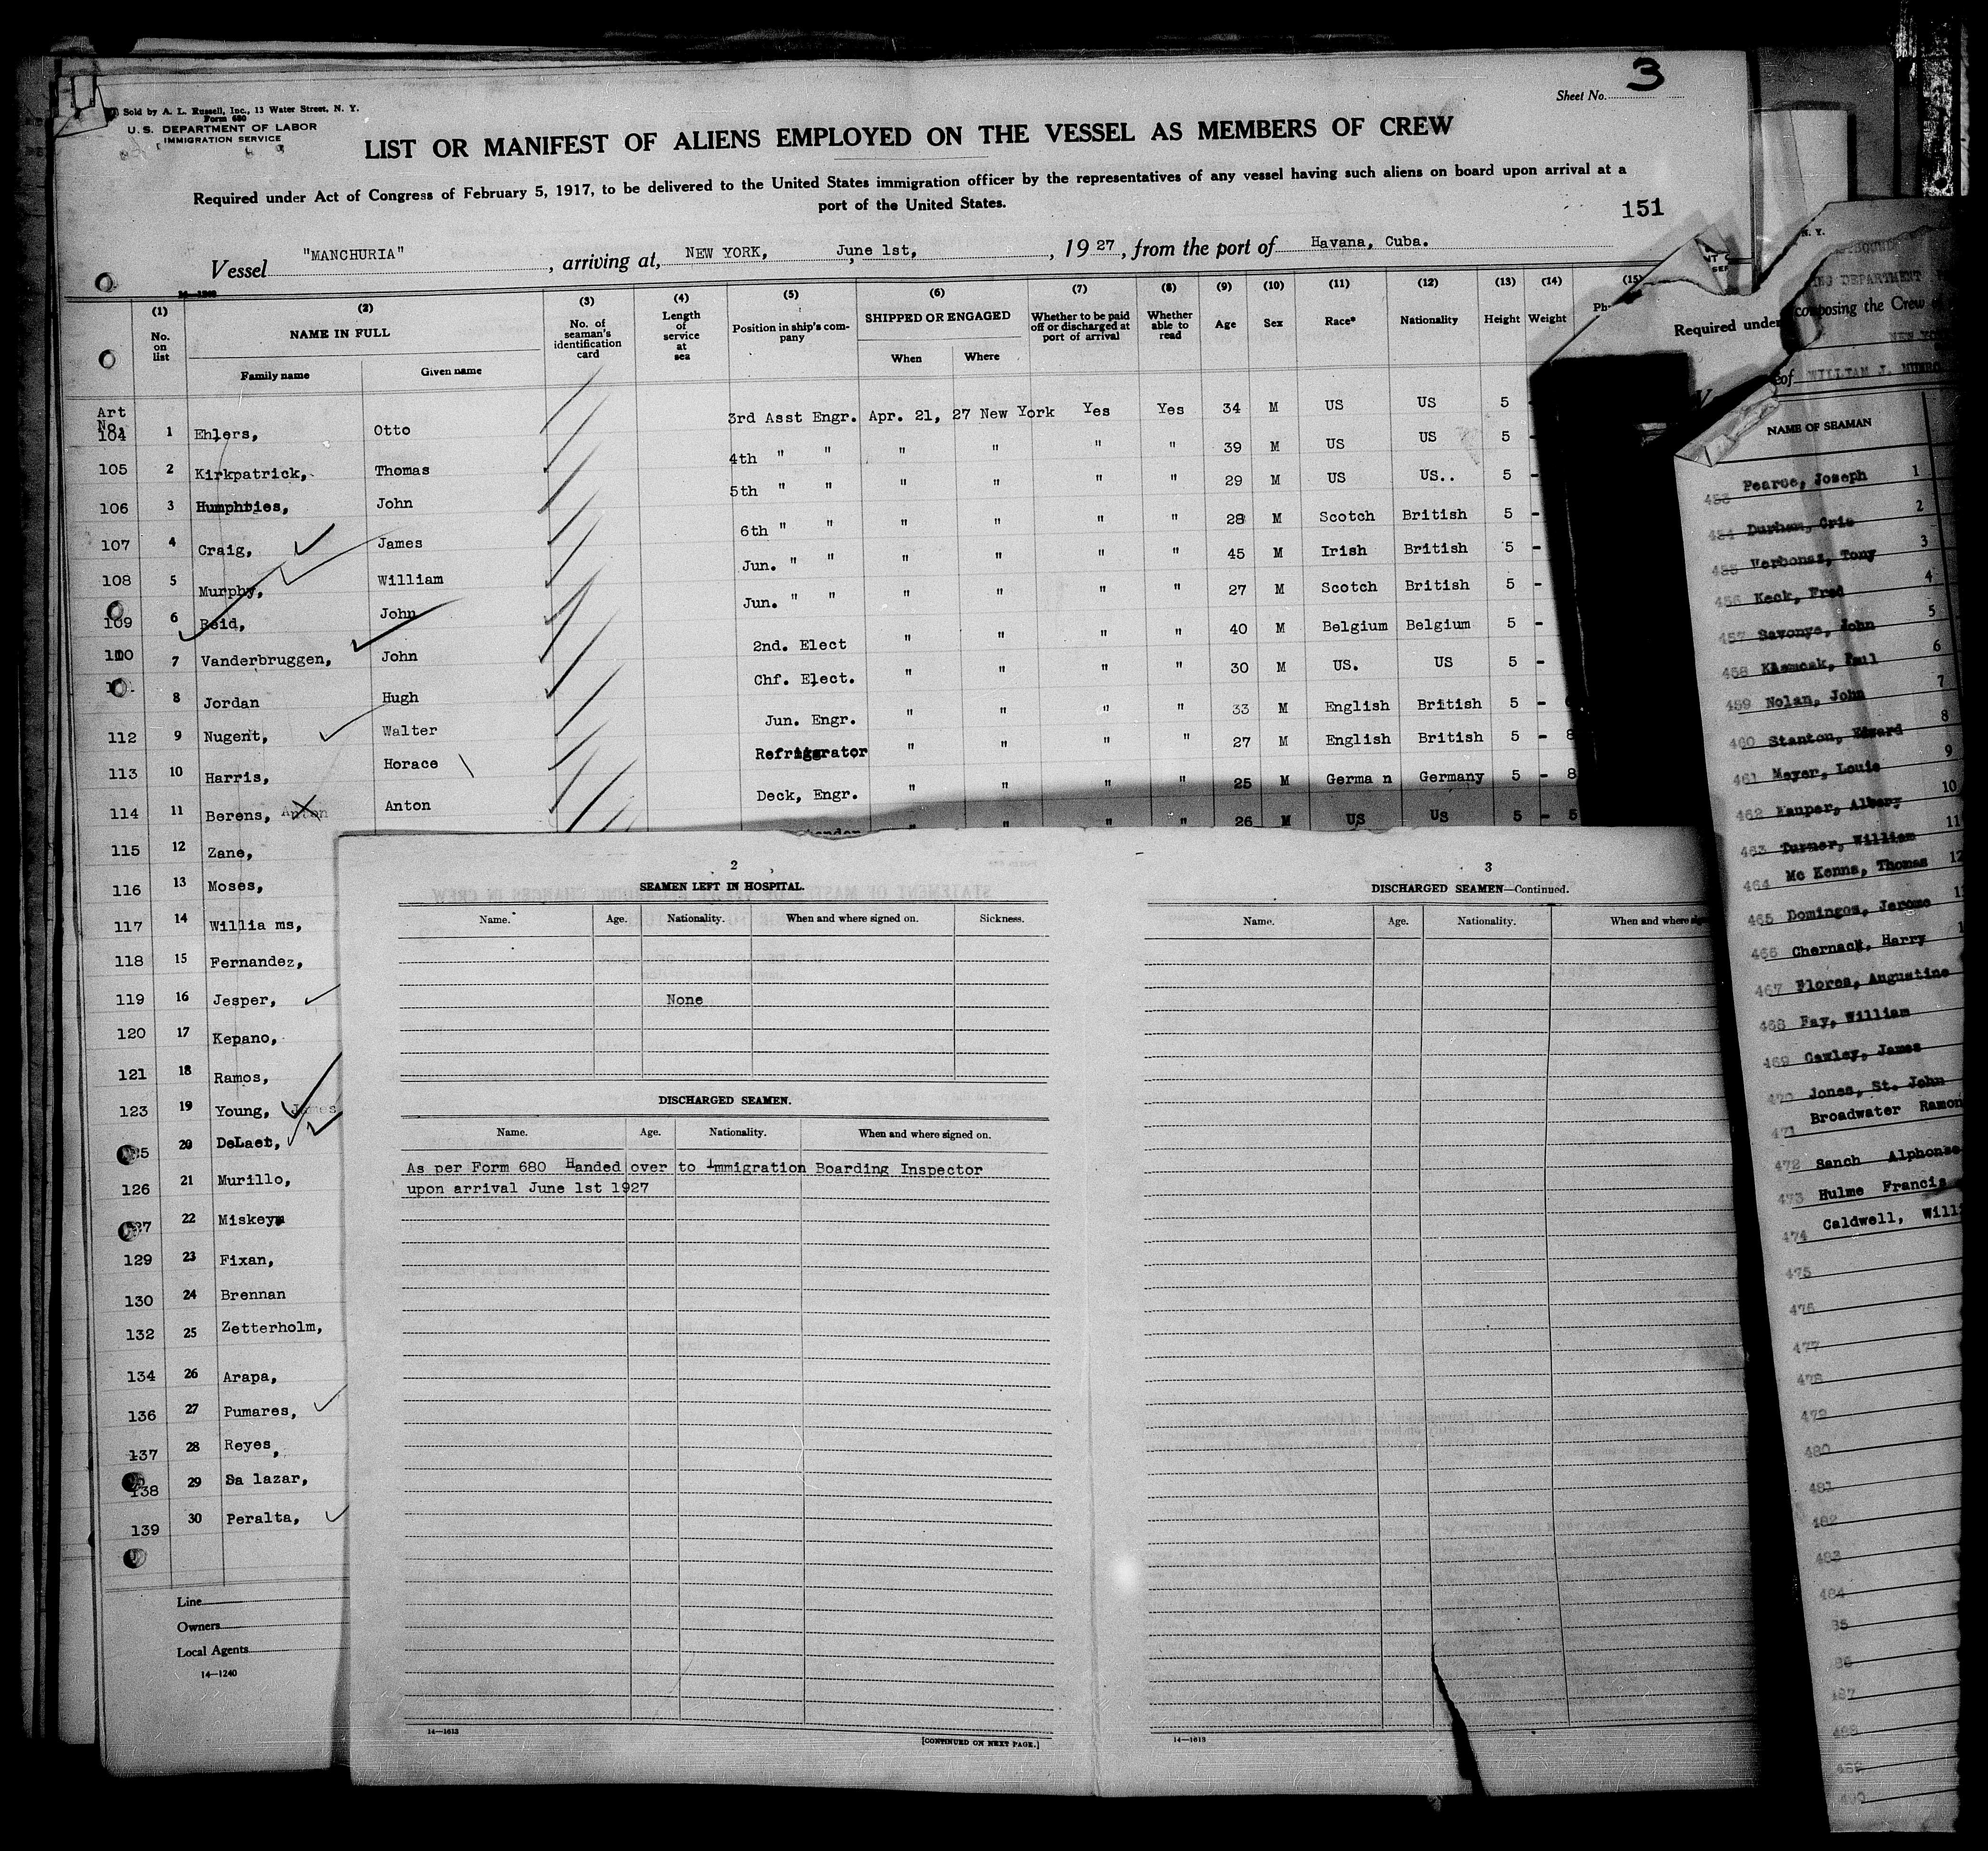 Sold by A. L. Russell, Inc., 13 Water Street, N. Y.
Form 680
U. S. DEPARTMENT OF LABOR
IMMIGRATION SERVICE
Sheet No. 3
LIST OR MANIFEST OF ALIENS EMPLOYED ON THE VESSEL AS MEMBERS OF CREW
Required under Act of Congress of February 5, 1917, to be delivered to the United States immigration officer by the representatives of any vessel having such aliens on board upon arrival at a
port of the United States.
151
Vessel "MANCHURIA", arriving at, NEW YORK, June 1st, , 1927, from the port of Havana, Cuba.
14—1240
(1) (2) (3) (4) (5) (6) (7) (8) (9) (10) (11) (12) (13) (14) (15)
No. on list NAME IN FULL No. of seaman's identification card Length of service at sea Position in ship's company SHIPPED OR ENGAGED Whether to be paid off or discharged at port of arrival Whether able to read Age Sex Race* Nationality Height Weight Ph
Family name Given name When Where
Art No.
104 1 Ehlers, Otto 3rd Asst Engr. Apr. 21, 27 New York Yes Yes 34 M US US 5
105 2 Kirkpatrick, Thomas 4th " " " " " " 39 M US US 5
106 3 Humphries, John 5th " " " " " " 29 M US US.. 5 -
107 4 Craig, James 6th " " " " " " 28 M Scotch British 5 -
108 5 Murphy, William Jun. " " " " " " 45 M Irish British 5 -
109 6 Reid, John Jun. " " " " " " 27 M Scotch British 5 -
110 7 Vanderbruggen, John 2nd. Elect " " " " 40 M Belgium Belgium 5 -
8 Jordan Hugh Chf. Elect. " " " " 30 M US. US 5 -
112 9 Nugent, Walter Jun. Engr. " " " " 33 M English British 5 -
113 10 Harris, Horace Refrigrator " " " " 27 M English British 5 - 8
114 11 Berens, Anton Anton Deck, Engr. " " " " 25 M Germa n Germany 5 - 8
115 12 Zane, " " " " 26 M US US 5 - 5
116 13 Moses,
117 14 Willia ms,
118 15 Fernandez,
119 16 Jesper,
120 17 Kepano,
121 18 Ramos,
123 19 Young, James
20 DeLaet,
126 21 Murillo,
22 Miskeym
129 23 Fixan,
130 24 Brennan
132 25 Zetterholm,
134 26 Arapa,
136 27 Pumares,
137 28 Reyes,
138 29 Sa lazar,
139 30 Peralta,
Line
Owners
Local Agents
14—1240
2
SEAMEN LEFT IN HOSPITAL.
Name. Age. Nationality. When and where signed on. Sickness.
None
DISCHARGED SEAMEN.
Name. Age. Nationality. When and where signed on.
As per Form 680 Handed over to Immigration Boarding Inspector
upon arrival June 1st 1927
14—1613
[CONTINUED ON NEXT PAGE.]
3
DISCHARGED SEAMEN—Continued.
Name. Age. Nationality. When and where
14—1613
Required under
N. Y.
DEPARTMENT
composing the Crew
NEW
of WILLIAM J. MUNRO
NAME OF SEAMAN
453 Pearce, Joseph 1
454 Durham, Cris 2
455 Verbonas, Tony 3
456 Keck, Fred 4
457 Savonye, John 5
458 6
459 Nolan, John 7
460 Stanton, Edward 8
461 Meyer, Louis 9
462 10
463 Turner, William 11
464 Mc Kenna, Thomas 12
465 Domingos, Jerome
466 Chernack, Harry
467 Flores, Augustine
468 Fay, William
469 Cawley, James
470 Jones, St. John
471 Broadwater Ramon
472 Sanch Alphonse
473 Hulme Francis
474 Caldwell,
475
476
477
478
479
480
481
482
483
484
85
86
487
488
489
490